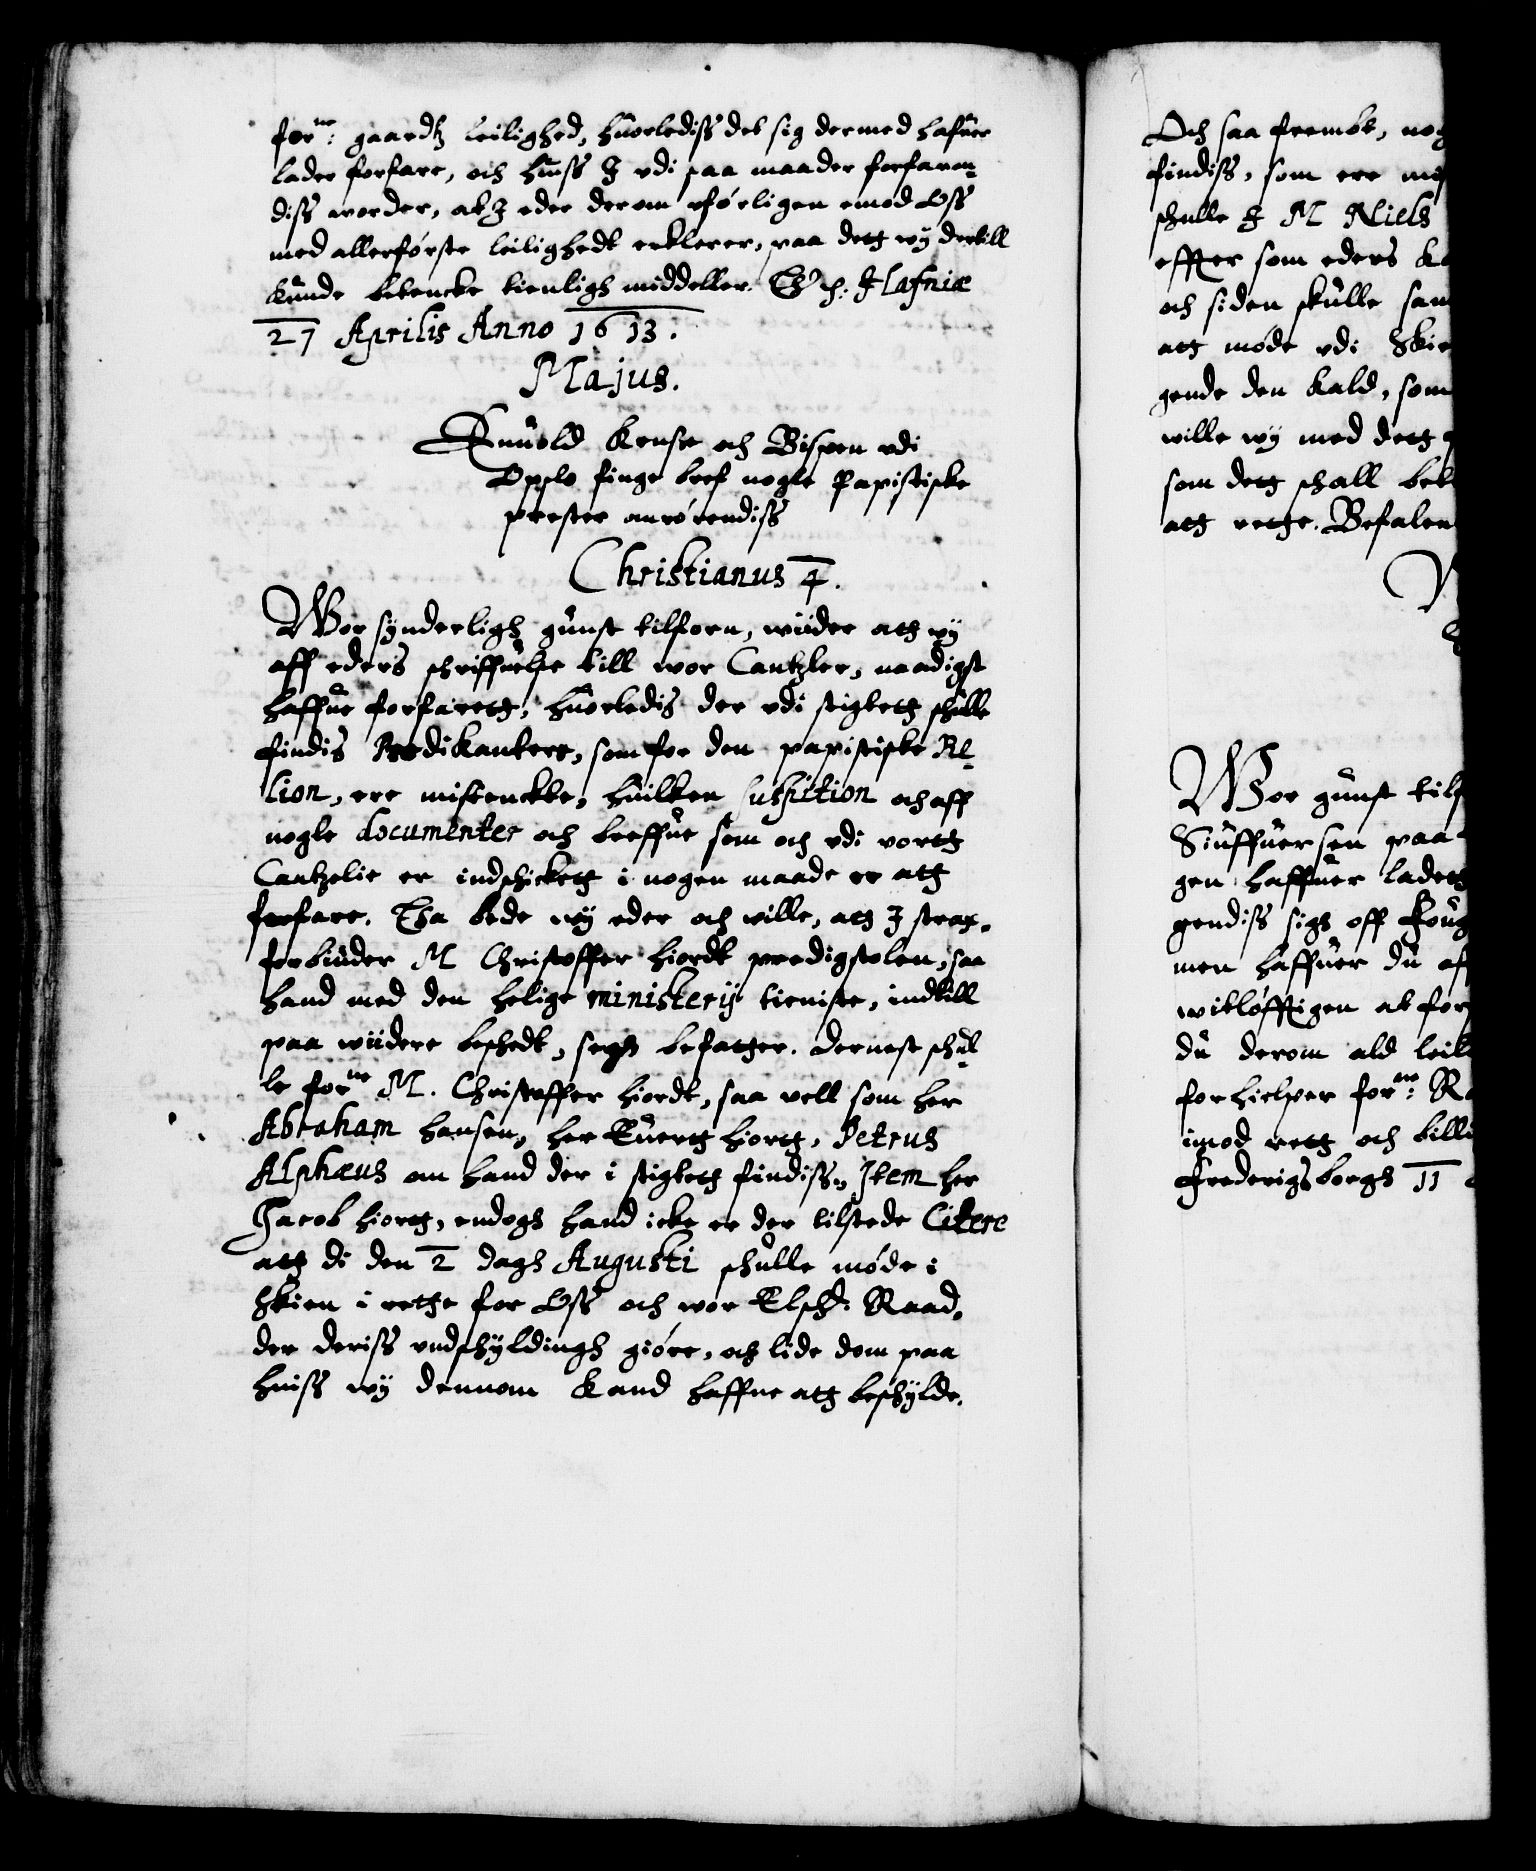 forne: gaardtz leilighed, huorlediss det sig dermed hafuer
lader forfare, och huiss I vdi saa maader forfaren-
diss worder, at I eder derom vførligen emod Oss
med allerførste leilighedt erklerer, paa detg wy dertill
kunde betencke tienligh middeller. Hafniæ
27 Aprilis Anno 1613.
Majus.
Enuold Kruse och Bispen vdi
Opslo finge bref nogle Papistiske
prester anrørendiss
Christianus 4.
Wor synderligh gunst tilforn, wiider att wy
aff eders schriffuelse till wor Cantzler, naadigst
haffue forfaretg, huorledis der vdi stigtetg schulle
findis Predikantere, som for den papistiske Re-
lion, ere mistenckte, huilken suspition och aff
nogle documenter och breffue som och vdi vortg
Cantzelie er indschicketg i nogen maade er att
forfare. Tha bede wy eder och wille, att I strax
forbiuder M Christoffer hiordt predigstolen, saa
hand med den helige ministerij tieniste, indtill
paa wiidere beschedt, segh befatter. dernest schul-
le forne M. Christoffer hiordt, saa vell som her
Abraham hansen, her Euertg hiortg, Petrus
Alphæus om hand der i stigtetg findiss, Item her
Jacob hiortg, endogh hand icke er der tilstede Citere
att di den 2 dagh Augusti schulle møde i
Skien i rette for Oss och wor Elsch: Raad,
der deriss vndschyldingh giøre, och lide dom paa
huiss wy dennom kand haffue att beschylde.
Och saa frembt, nog
findiss, som ere mis
schulle I M Niels
effter som eders Ka
och siden skulle sam
att møde vdi Skie
gende den kald, som
wille wy med detg
som detg schall bet
att rette. Befalen
Wor gunst tilf
Siuffuersen paa
gen haffuer ladetg
gendiss sigh off Foug
men haffuer du aff
witløfftigen at forf
du derom ald leil
forhielper forne: Ra
imod rett och billi
Frederigsborgh 11